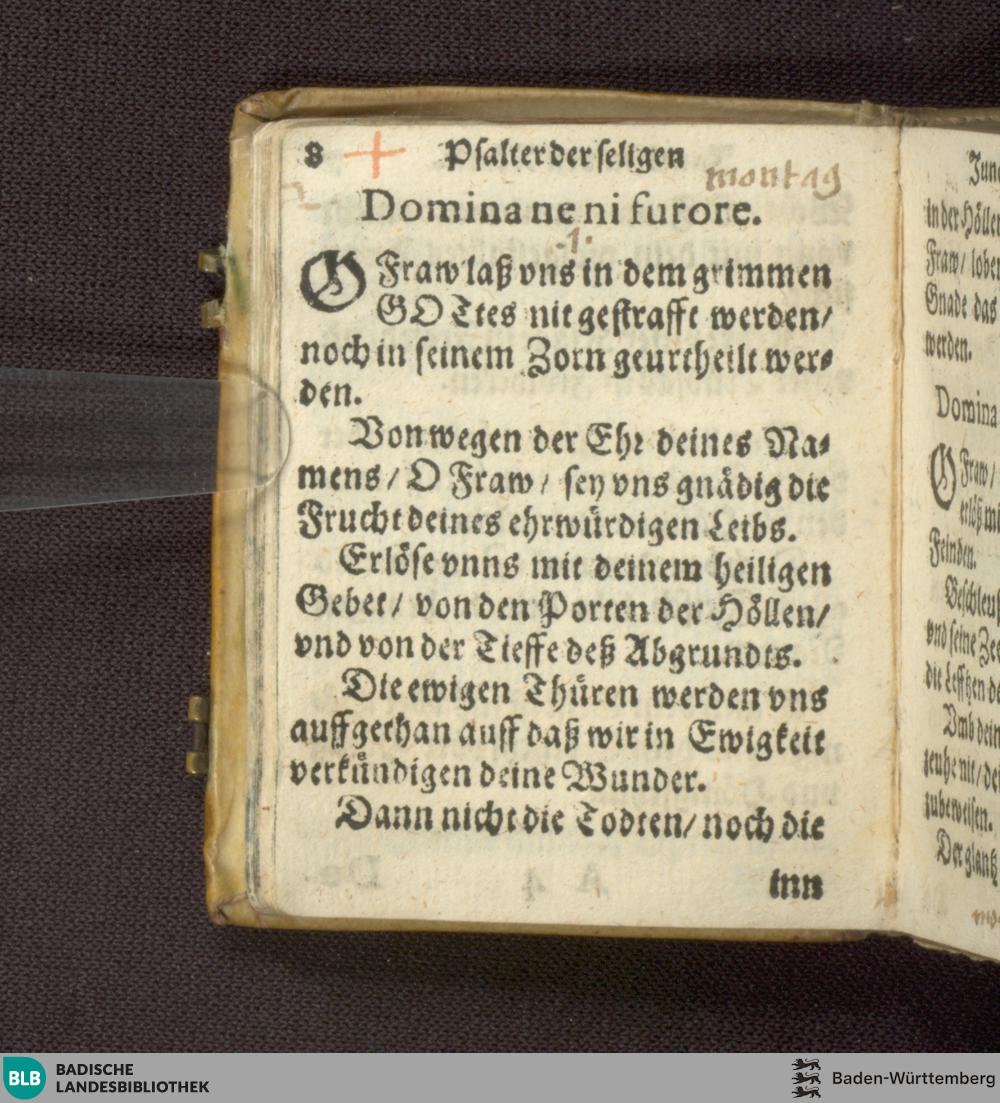 8 + Psalter der seligen
montag
Domina ne ni furore.
.1.
O Fraw laß vns in dem grimmen
GOTtes nit gestrafft werden/
noch in seinem Zorn geurtheilt wer⸗
den.
Von wegen der Ehr deines Na⸗
mens/ O Fraw/ sey vns gnädig die
Frucht deines ehrwürdigen Leibs.
Erlöse vnns mit deinem heiligen
Gebet/ von den Porten der Höllen/
vnd von der Tieffe deß Abgrundts.
Die ewigen Thüren werden vns
auffgethan auff daß wir in Ewigkeit
verkündigen deine Wunder.
Dann nicht die Todten/ noch die
inn
in der Hölle
Fraw/ lobe
Gnade das
werden.
Domina
O Fraw/
erlöß mi
Feinden.
Beschleu
vnd seine Ze
die Lefftzen de
Vmb dein
zeuhe nit/ de
zubeweisen.
Der glantz
BLB BADISCHE
LANDESBIBLIOTHEK
Baden-Württemberg